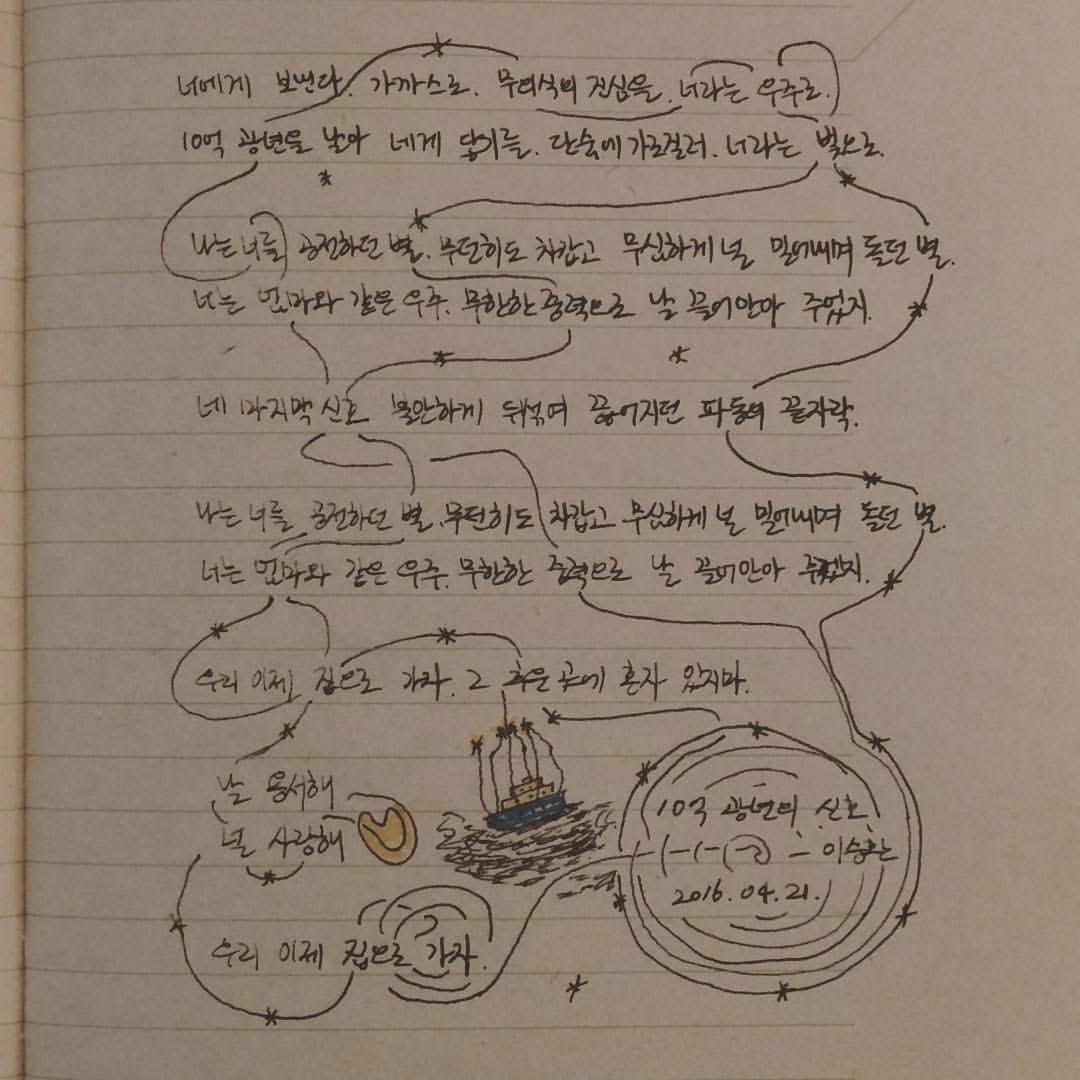 너에게 보낸다. 가까스로. 무의식의 진심을. 너라는 우주로.
10억 광년을 날아 네게 닿기를. 단숨에 가로질러. 너라는 별으로.
나는 너를 공전하던 별. 무던히도 차갑고 무심하게 널 밀어내며 돌던 별.
너는 엄마와 같은 우주. 무한한 중력으로 날 끌어안아 주었지.
네 마지막 신호 불안하게 뒤섞여 끊어지던 파동의 끝자락.
나는 너를 공전하던 별. 무던히도 차갑고 무심하게 널 밀어내며 돌던 별.
너는 엄마와 같은 우주. 무한한 중력으로 날 끌어안아 주었지.
우리 이제 집으로 가자. 그 추운 곳에 혼자 있지마.
날 용서해
널 사랑해
우리 이제 집으로 가자.
10억 광년의 신호
- 이승환
2016.04.21.